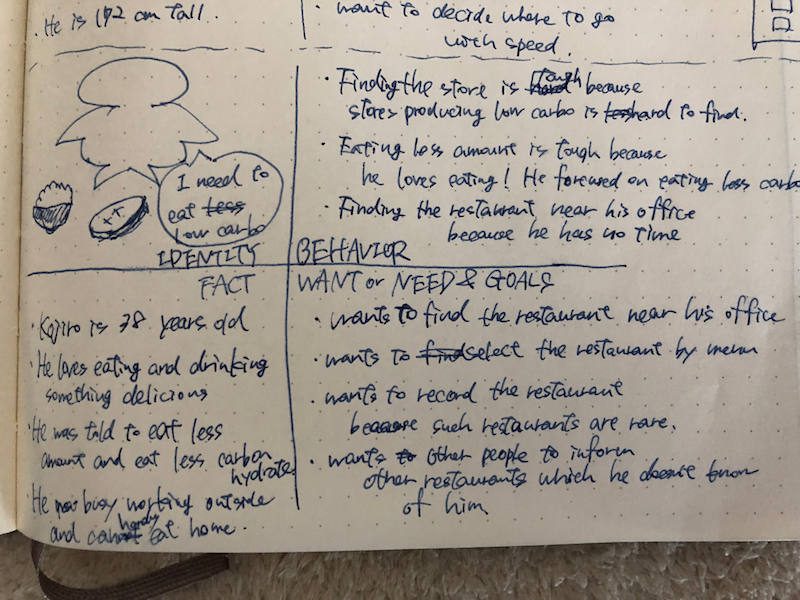 He is 172 cm tall.
· want to decide where to go
with speed.
I need to
eat less
low carbo
IDENTITY
· Finding the store is hard tough because
stores producing low carbo is less hard to find.
· Eating less amount is tough because
he loves eating! He forcused on eating less carbo
· Finding the restaurant near his office
because he has no time
BEHAVIOR
FACT
· Kojiro is 38 years old
· He loves eating and drinking
something delicious
· He was told to eat less
amount and eat less carbon
hydrate.
· He now busy working outside
and hardly eat home.
WANT or NEED & GOALS
· wants to find the restaurant near his office
· wants to find select the restaurant by menu
· wants to record the restaurant
because such restaurants are rare.
· wants to other people to inform
other restaurants which he doesnt know
of him